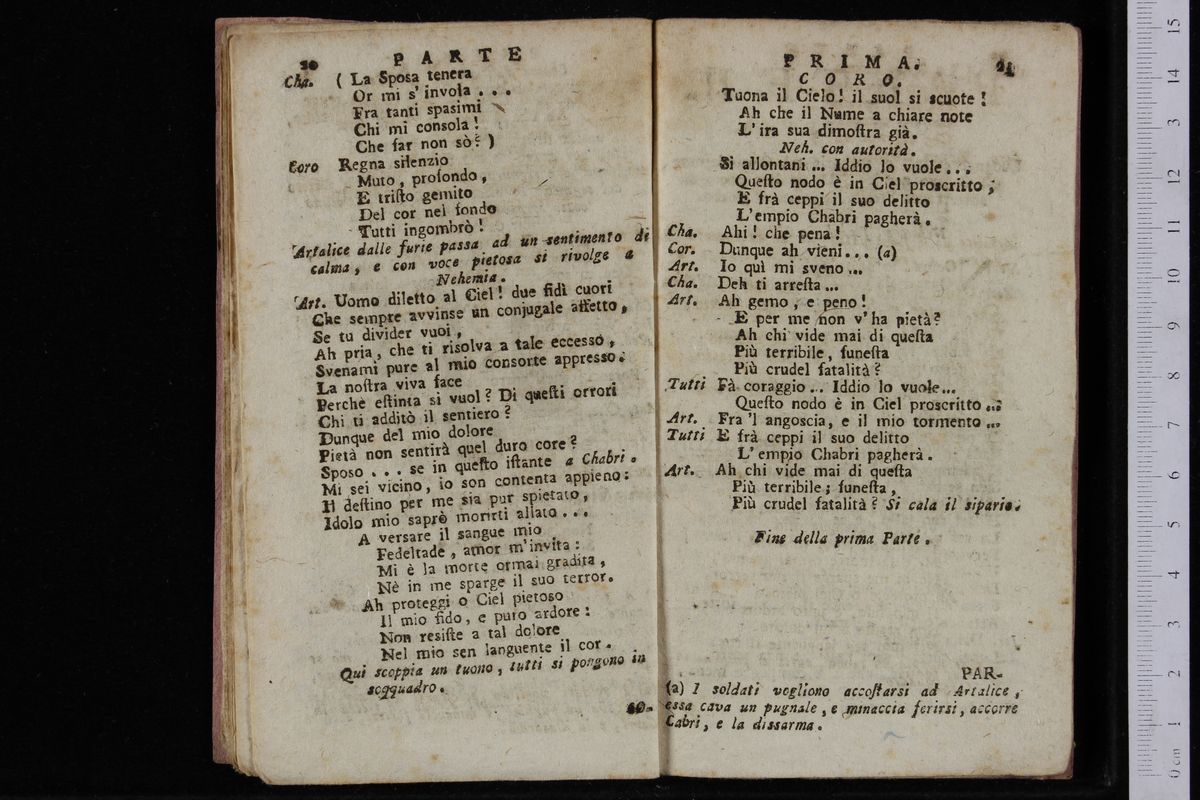 20 PARTE
Cha. ( La Sposa tenera
Or mi s'invola . . .
Fra tanti spasimi
Chi mi consola !
Che far non sò? )
Coro Regna silenzio
Muto, profondo,
E tristo gemito
Del cor nel fondo
Tutti ingombrò !
Artalice dalle furie passa ad un sentimento di
calma, e con voce pietosa si rivolge a
Nehemia.
Art. Uomo diletto al Ciel! due fidi cuori
Che sempre avvinse un conjugale affetto,
Se tu divider vuoi,
Ah pria, che ti risolva a tale eccesso,
Svenami pure al mio consorte appresso.
La nostra viva face
Perchè estinta si vuol? Di questi orrori
Chi ti additò il sentiero?
Dunque del mio dolore
Pietà non sentirà quel duro core?
Sposo . . . se in questo istante a Chabri.
Mi sei vicino, io son contenta appieno:
Il destino per me sia pur spietato,
Idolo mio saprò morirti allato . . .
A versare il sangue mio
Fedeltade, amor m'invita:
Mi è la morte ormai gradita,
Nè in me sparge il suo terror.
Ah proteggi o Ciel pietoso
Il mio fido, e puro ardore:
Non resiste a tal dolore
Nel mio sen languente il cor.
Qui scoppia un tuono, tutti si pongono in
soqquadro.
CO-
PRIMA. 21
CORO.
Tuona il Cielo! il suol si scuote!
Ah che il Nume a chiare note
L'ira sua dimostra già.
Neh. con autorità.
Si allontani ... Iddio lo vuole...
Questo nodo è in Ciel proscritto;
E frà ceppi il suo delitto
L'empio Chabri pagherà.
Cha. Ahi! che pena!
Cor. Dunque ah vieni... (a)
Art. Io quì mi sveno ...
Cha. Deh ti arresta ...
Art. Ah gemo, e peno!
E per me non v'ha pietà?
Ah chi vide mai di questa
Più terribile, funesta
Più crudel fatalità?
Tutti Fà coraggio... Iddio lo vuole...
Questo nodo è in Ciel proscritto ...
Art. Fra 'l angoscia, e il mio tormento ...
Tutti E frà ceppi il suo delitto
L'empio Chabri pagherà.
Art. Ah chi vide mai di questa
Più terribile; funesta,
Più crudel fatalità? Si cala il sipario.
Fine della prima Parte.
PAR-
(a) I soldati vogliono accostarsi ad Artalice,
essa cava un pugnale, e minaccia ferirsi, accorre
Cabri, e la dissarma.
0 cm 1 2 3 4 5 6 7 8 9 10 11 12 13 14 15